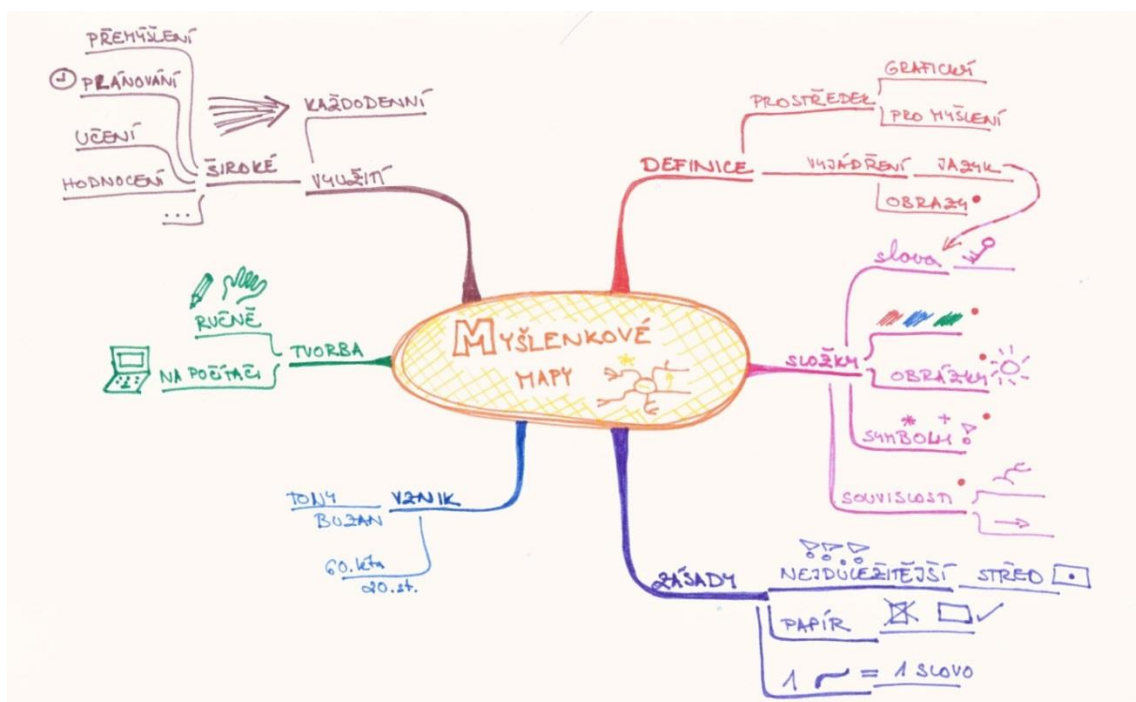 MYŠLENKOVÉ
MAPY
DEFINICE
PROSTŘEDEK
GRAFICKÝ
PRO MYŠLENÍ
VYJÁDŘENÍ
JAZYK
OBRAZY
SLOŽKY
slova
OBRÁZKY
SYMBOLY
SOUVISLOSTI
ZÁSADY
NEJDŮLEŽITĚJŠÍ
STŘED
PAPÍR
1 = 1 SLOVO
VZNIK
TONY
BUZAN
60. léta
20. st.
TVORBA
RUČNĚ
NA POČÍTAČI
VYUŽITÍ
KAŽDODENNÍ
ŠIROKÉ
PŘEMÝŠLENÍ
PLÁNOVÁNÍ
UČENÍ
HODNOCENÍ
...